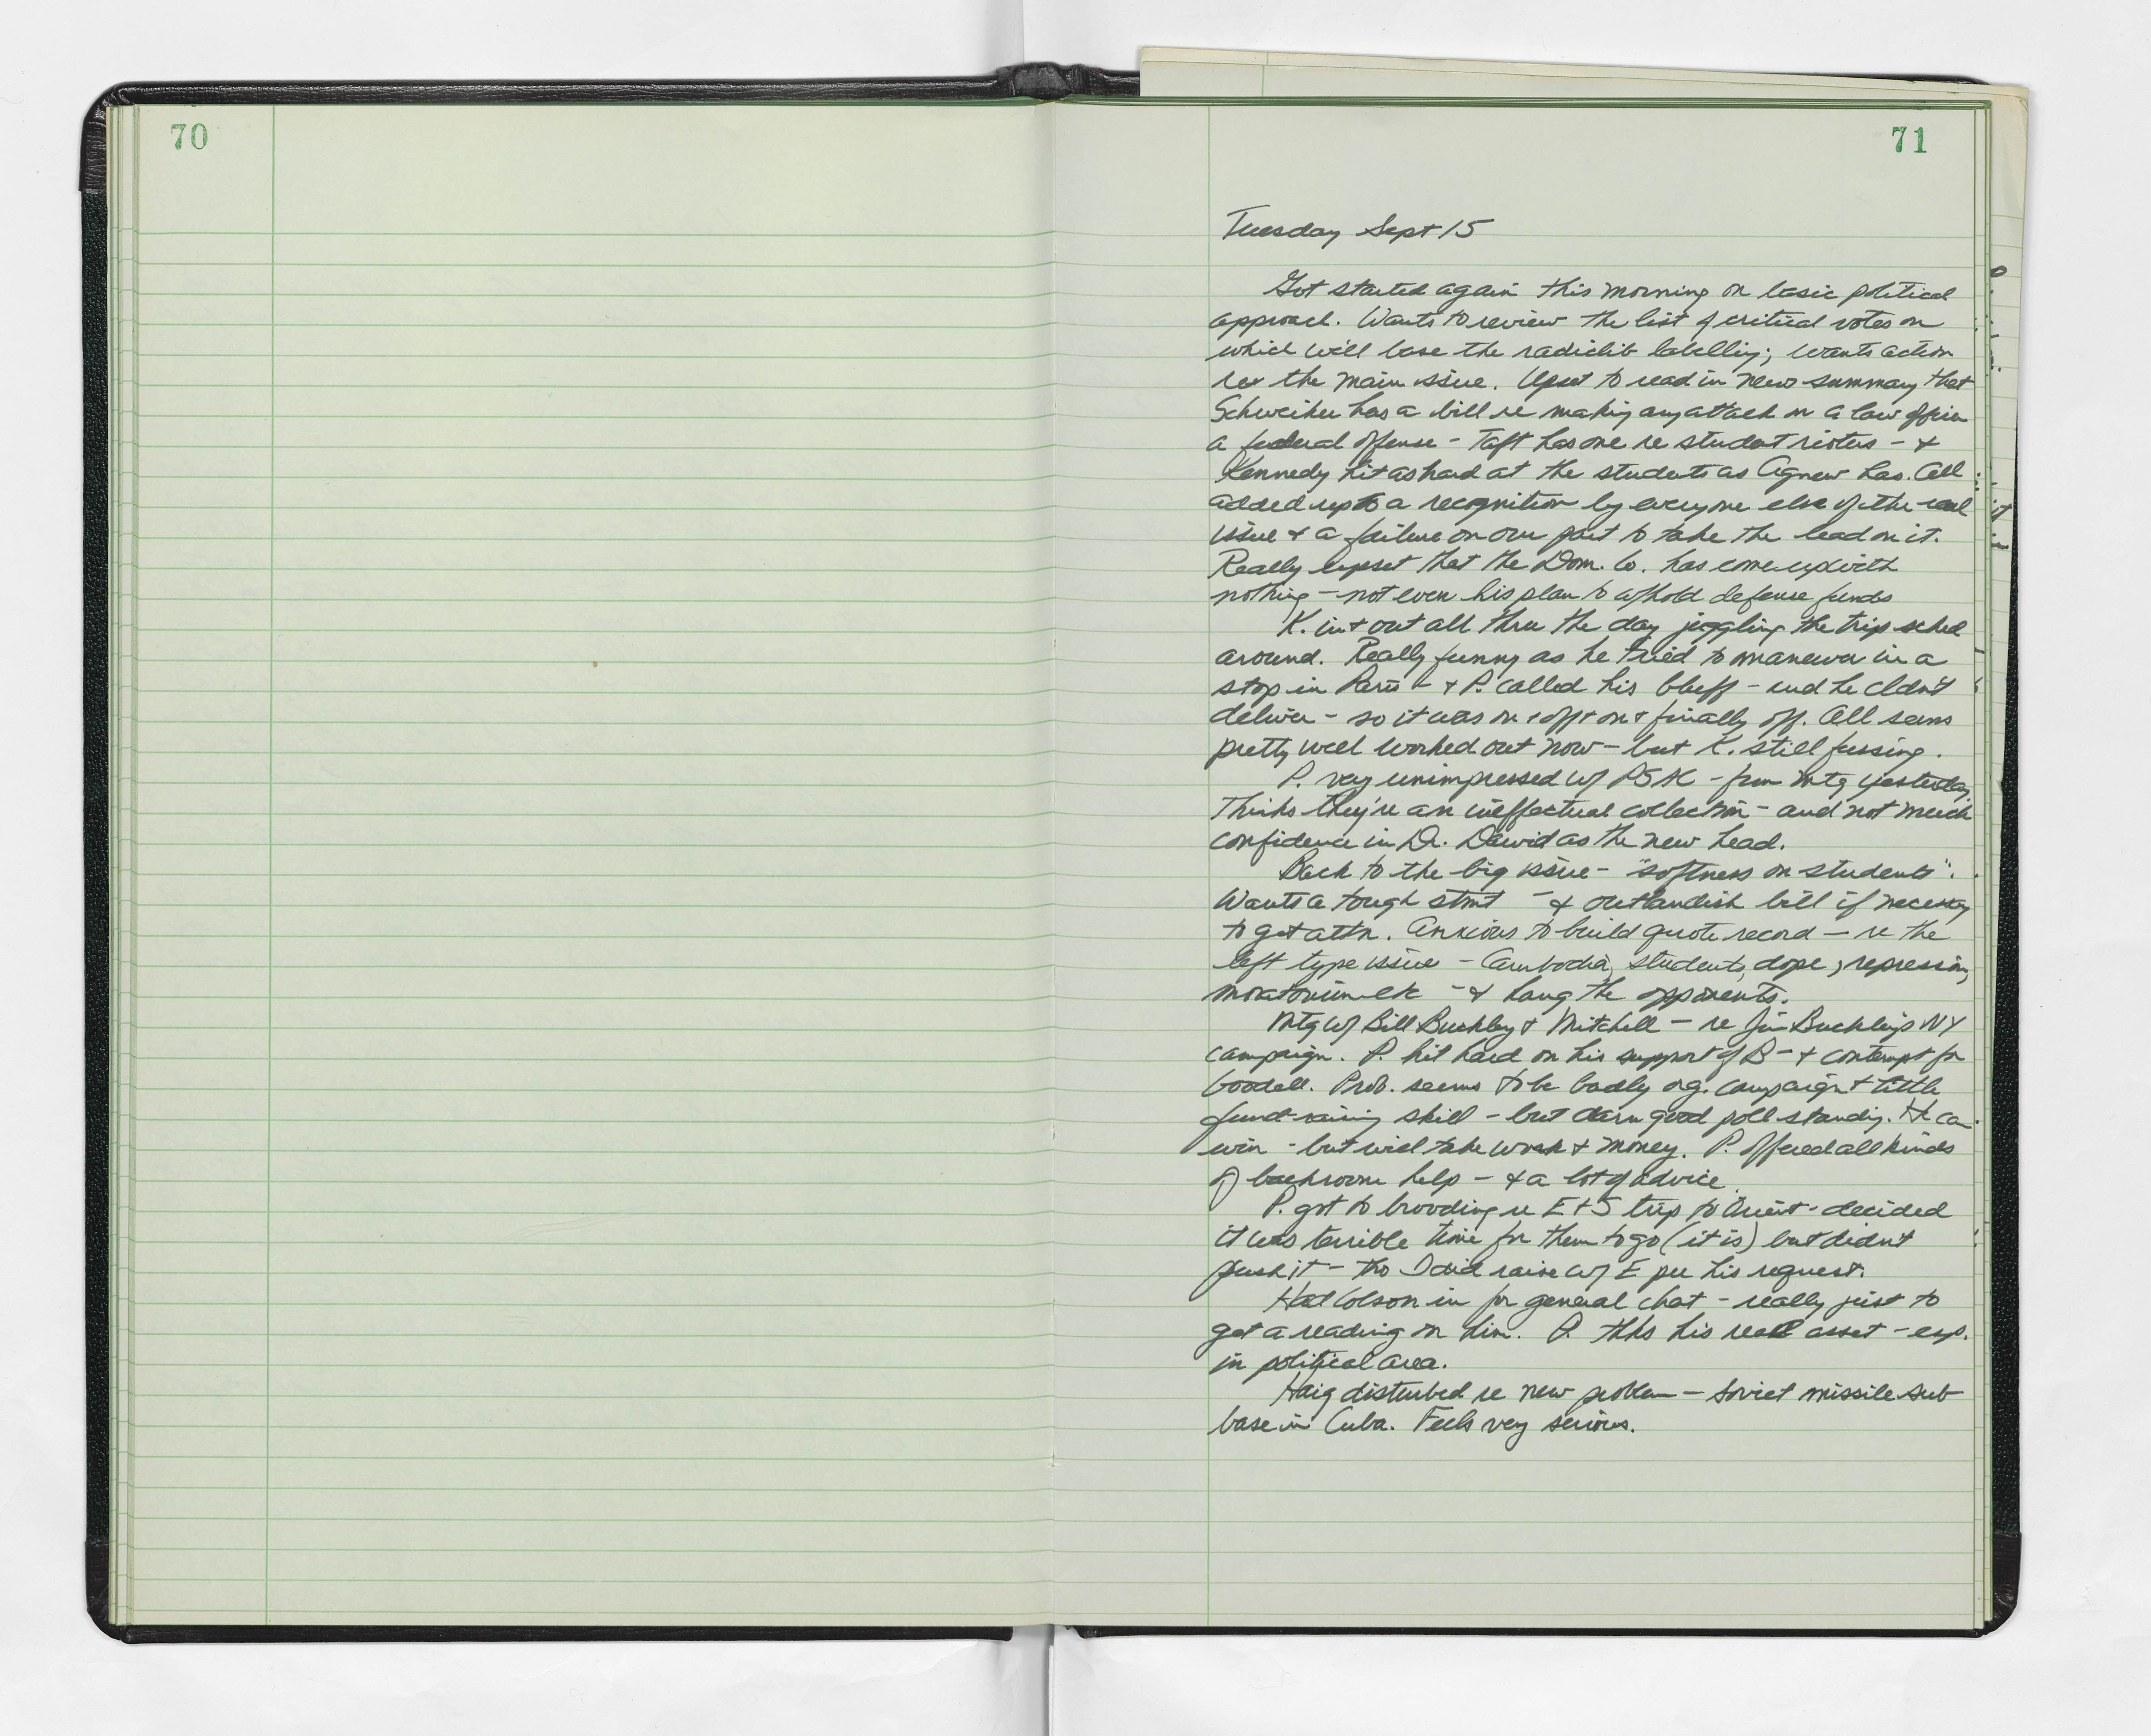 70
71
Tuesday Sept 15
Got started again this morning on basic political
approach. Wants to review the list of critical votes on
which we'll base the radiclib labelling; wants action
re the main issue. Upset to read in news summary that
Schweiker has a bill re making any attack on a law officer
a federal offense - Taft has one re student rioters - &
Kennedy hit as hard at the students as Agnew has. All
added up to a recognition by everyone else of the real
issue & a failure on our part to take the lead on it.
Really upset that the Dom. Co. has come up with
nothing - not even his plan to w/hold defense funds
K. in & out all thru the day juggling the trip sched
around. Really funny as he tried to maneuver in a
stop in Paris - & P. called his bluff - and he cldn't
deliver - so it was on & off & on & finally off. All seems
pretty well worked out now - but K. still fussing.
P. very unimpressed w/ PSAC - from mtg yesterday
Thinks they're an ineffectual collection - and not much
confidence in Dr. David as the new head.
Back to the big issue - "softness on students".
Wants a tough stmt - & outlandish bill if necessary
to get attn. Anxious to build quote record - re the
left type issue - Cambodia, students, dope, repression,
moratorium etc - & hang the opponents.
Mtg w/ Bill Buckley & Mitchell - re Jim Buckley's NY
campaign. P. hit hard on his support of B - & contempt for
Goodell. Prob. seems to be badly org. campaign & little
fund-raising skill - but darn good poll standing. He can
win - but will take work & money. P. offered all kinds
of backroom help - & a lot of advice.
P. got to brooding re E & S trip to Orient - decided
it was terrible time for them to go (it is) but didn't
push it - tho I did raise w/ E per his request.
Had Colson in for general chat - really just to
get a reading on him. P. thks his real asset - esp.
in political area.
Haig disturbed re new problem - Soviet missile sub
base in Cuba. Feels very serious.